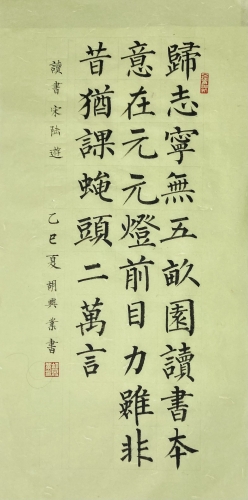 歸志寧無五畝園讀書本
意在元元燈前目力雖非
昔猶課蠅頭二萬言
讀書宋陆遊
乙巳夏胡興業書